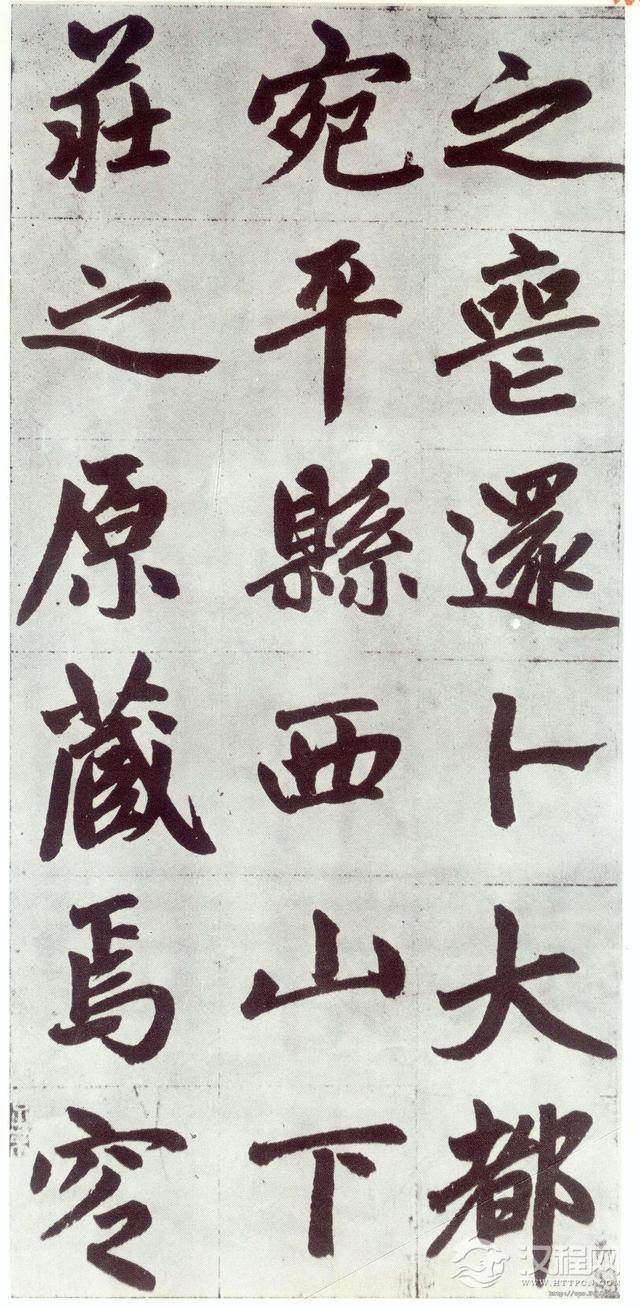 之喪還卜大都
宛平縣西山下
莊之原藏焉窆
汉程网
WWW.HTTPCN.COM